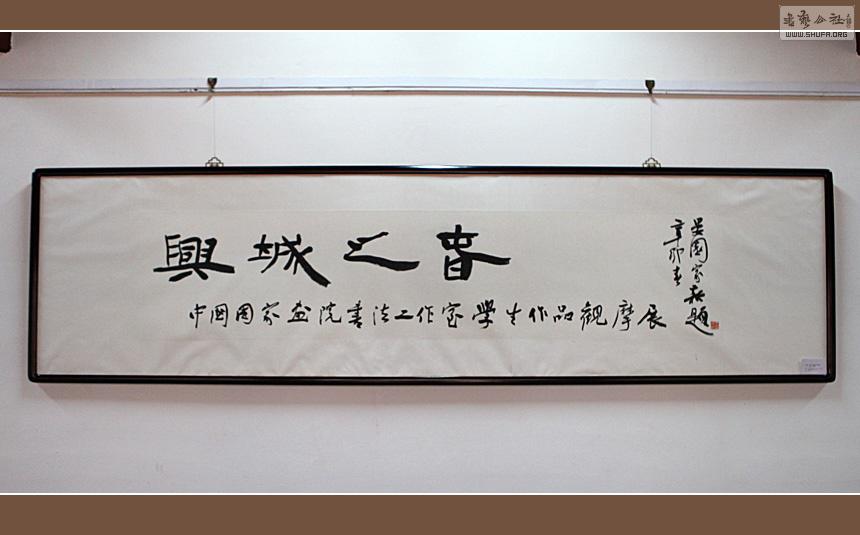 書藝公社
WWW.SHUFA.ORG
興城之春
中國國家畫院書法工作室學生作品觀摩展
國題
辛卯春